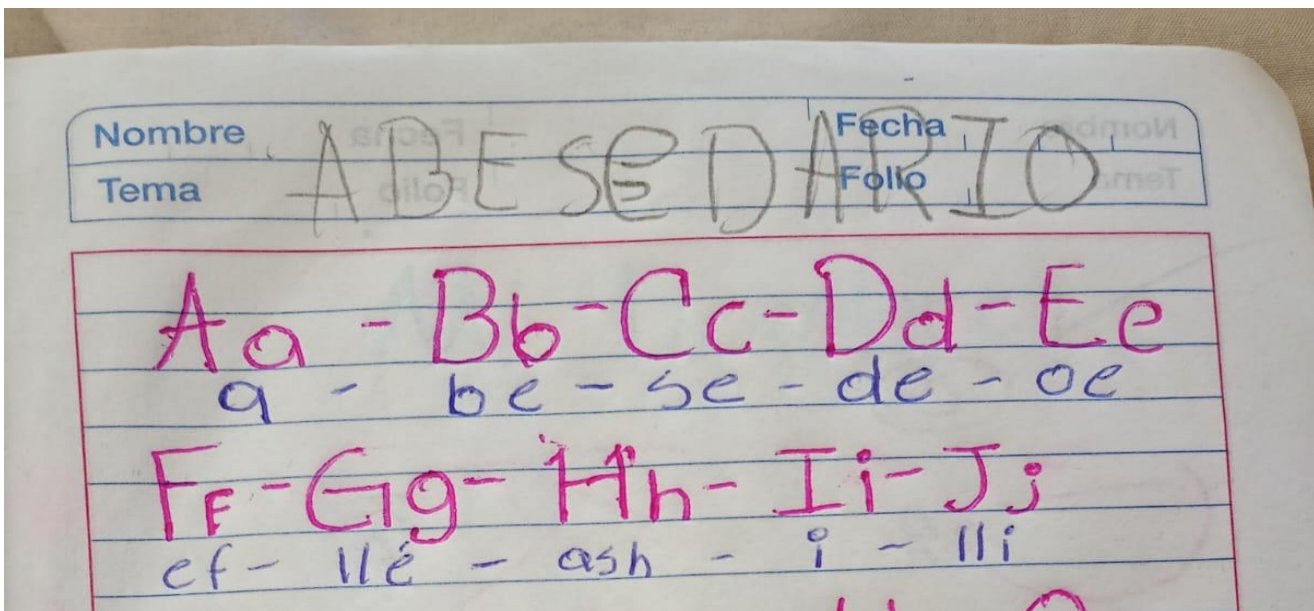 Nombre Fecha
Tema Folio
ABESEDARIO
Aa - Bb - Cc - Dd - Ee
a - be - se - de - oe
FF - Gg - Hh - Ii - Jj
ef - llé - ash - i - lli